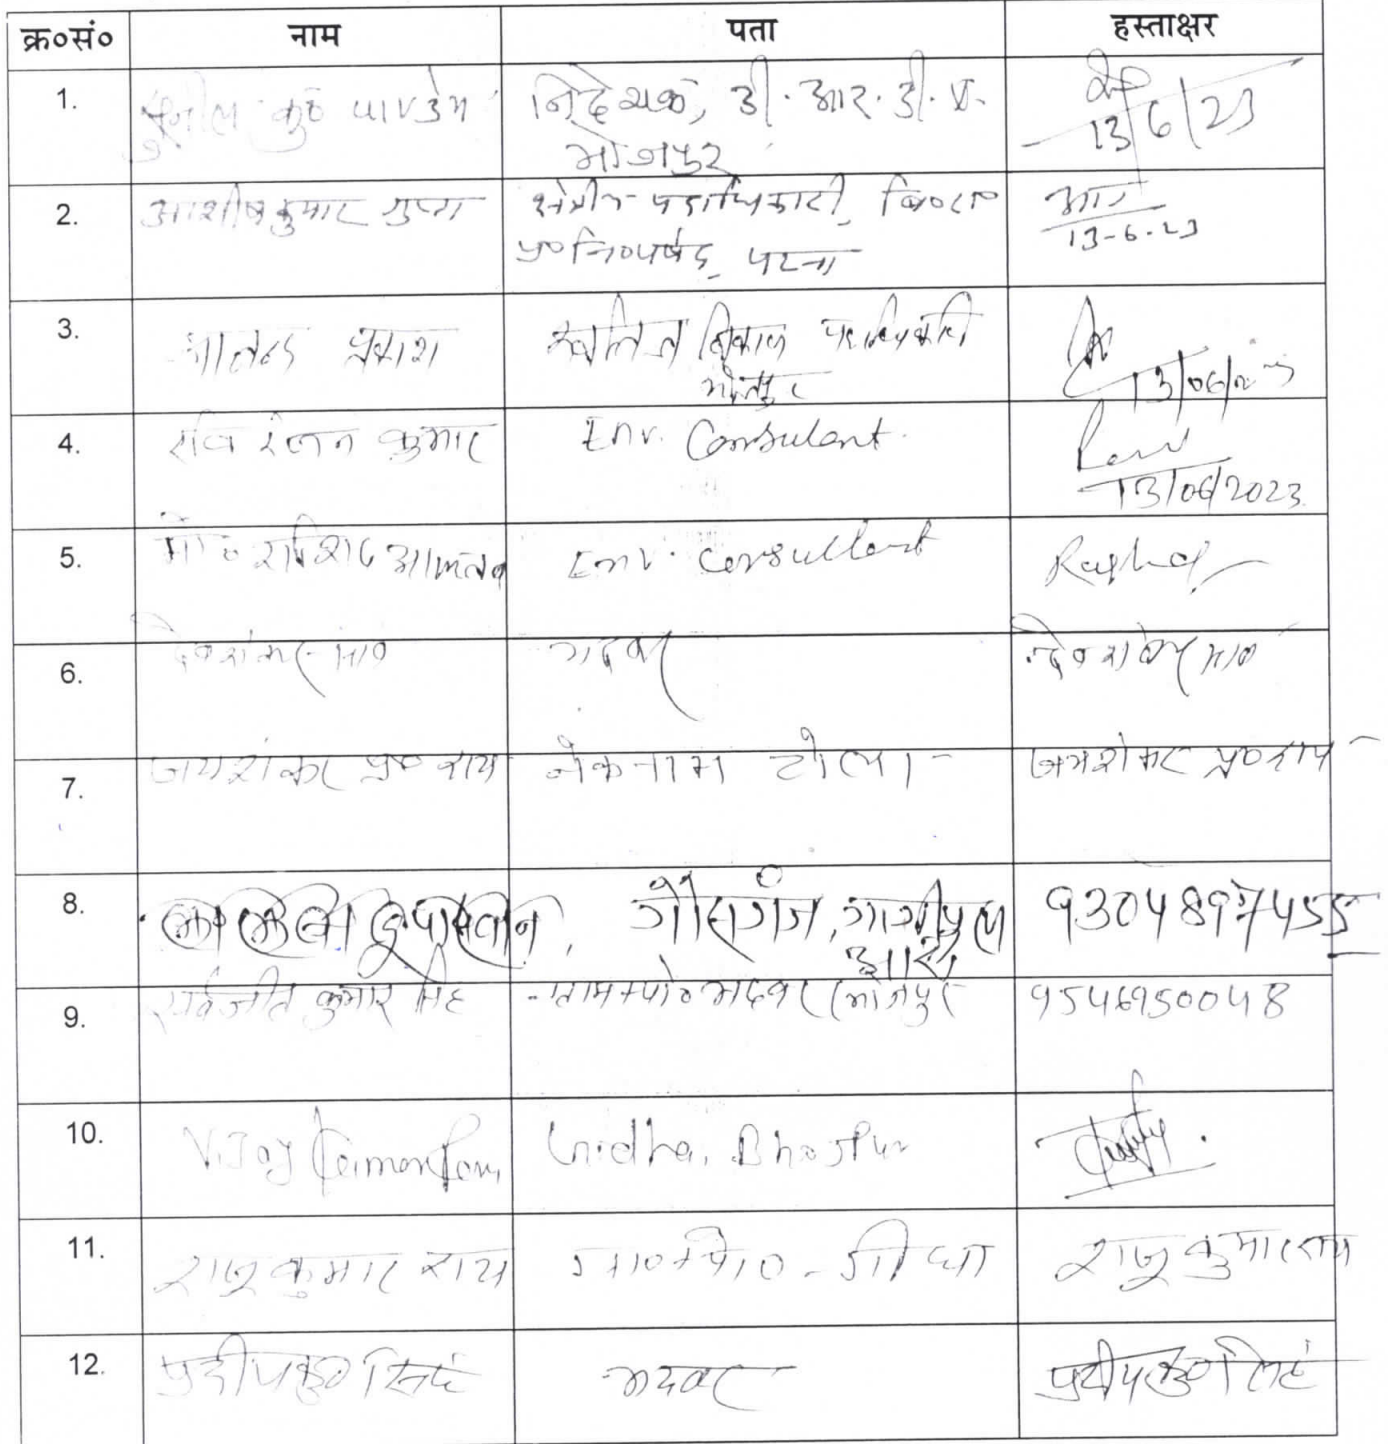 क्र०सं० नाम पता हस्ताक्षर
1. सुनील कु० पाण्डेय निदेशक, डी.आर.डी.ए.
भोजपुर
13/6/23
2. आशीष कुमार गुप्ता क्षेत्रीय पदाधिकारी, बि०रा०
प्र०नि०पर्षद, पटना
13-6-23
3. आनन्द प्रकाश खनिज विकास पदाधिकारी
भोजपुर
13/06/2023
4. रवि रंजन कुमार Env. Consulant.
Ravi
13/06/2023
5. मो० राशिद Env. Consultant Rashid
6. देवशंकर भदवर देवशंकर
7. जयशंकर प्र० राय नेकनाम टोला जयशंकर प्र० राय
8. गौसगंज, 9304897455
आरा
9. सर्वजीत कुमार सिंह ग्राम+पो० भदवर (भोजपुर 9546950048
10. Vijay Kumar Ram Gidha, Bhojpur
11. राजू कुमार राय ग्रा०+पो० - गीधा राजू कुमार राय
12. प्रदीप कु० सिंह भदवर प्रदीप कु० सिंह